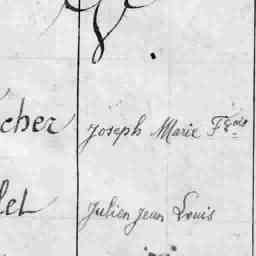 cher Joseph Marie Fçois
let Julien Jean Louis